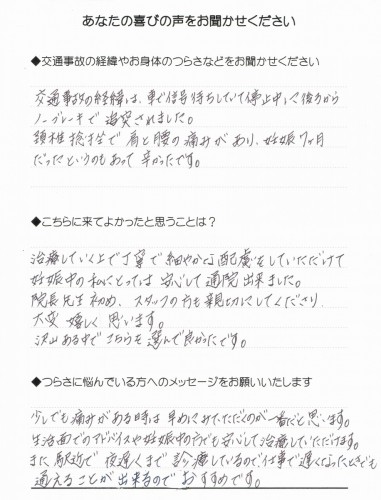 あなたの喜びの声をお聞かせください
◆交通事故の経緯やお身体のつらさなどをお聞かせください
交通事故の経緯は、車で信号待ちしていて停止中に後方から
ノーブレーキで追突されました。
頚椎捻挫で肩と腰の痛みがあり、妊娠7ヶ月
だったというのもあって辛かったです。
◆こちらに来てよかったと思うことは？
治療していく上で丁寧で細やかな配慮をしていただけて
妊娠中の私にとっては安心して通院出来ました。
院長先生初め、スタッフの方も親切にしてくださり、
大変嬉しく思います。
沢山ある中でこちらを選んで良かったです。
◆つらさに悩んでいる方へのメッセージをお願いいたします
少しでも痛みがある時は早めにみていただくのが一番だと思います。
生活面でのアドバイスや妊娠中の方でも安心して治療していただけます。
また、駅近で夜遅くまで診療しているので仕事で遅くなったときでも
通えることが出来るのでおすすめです。